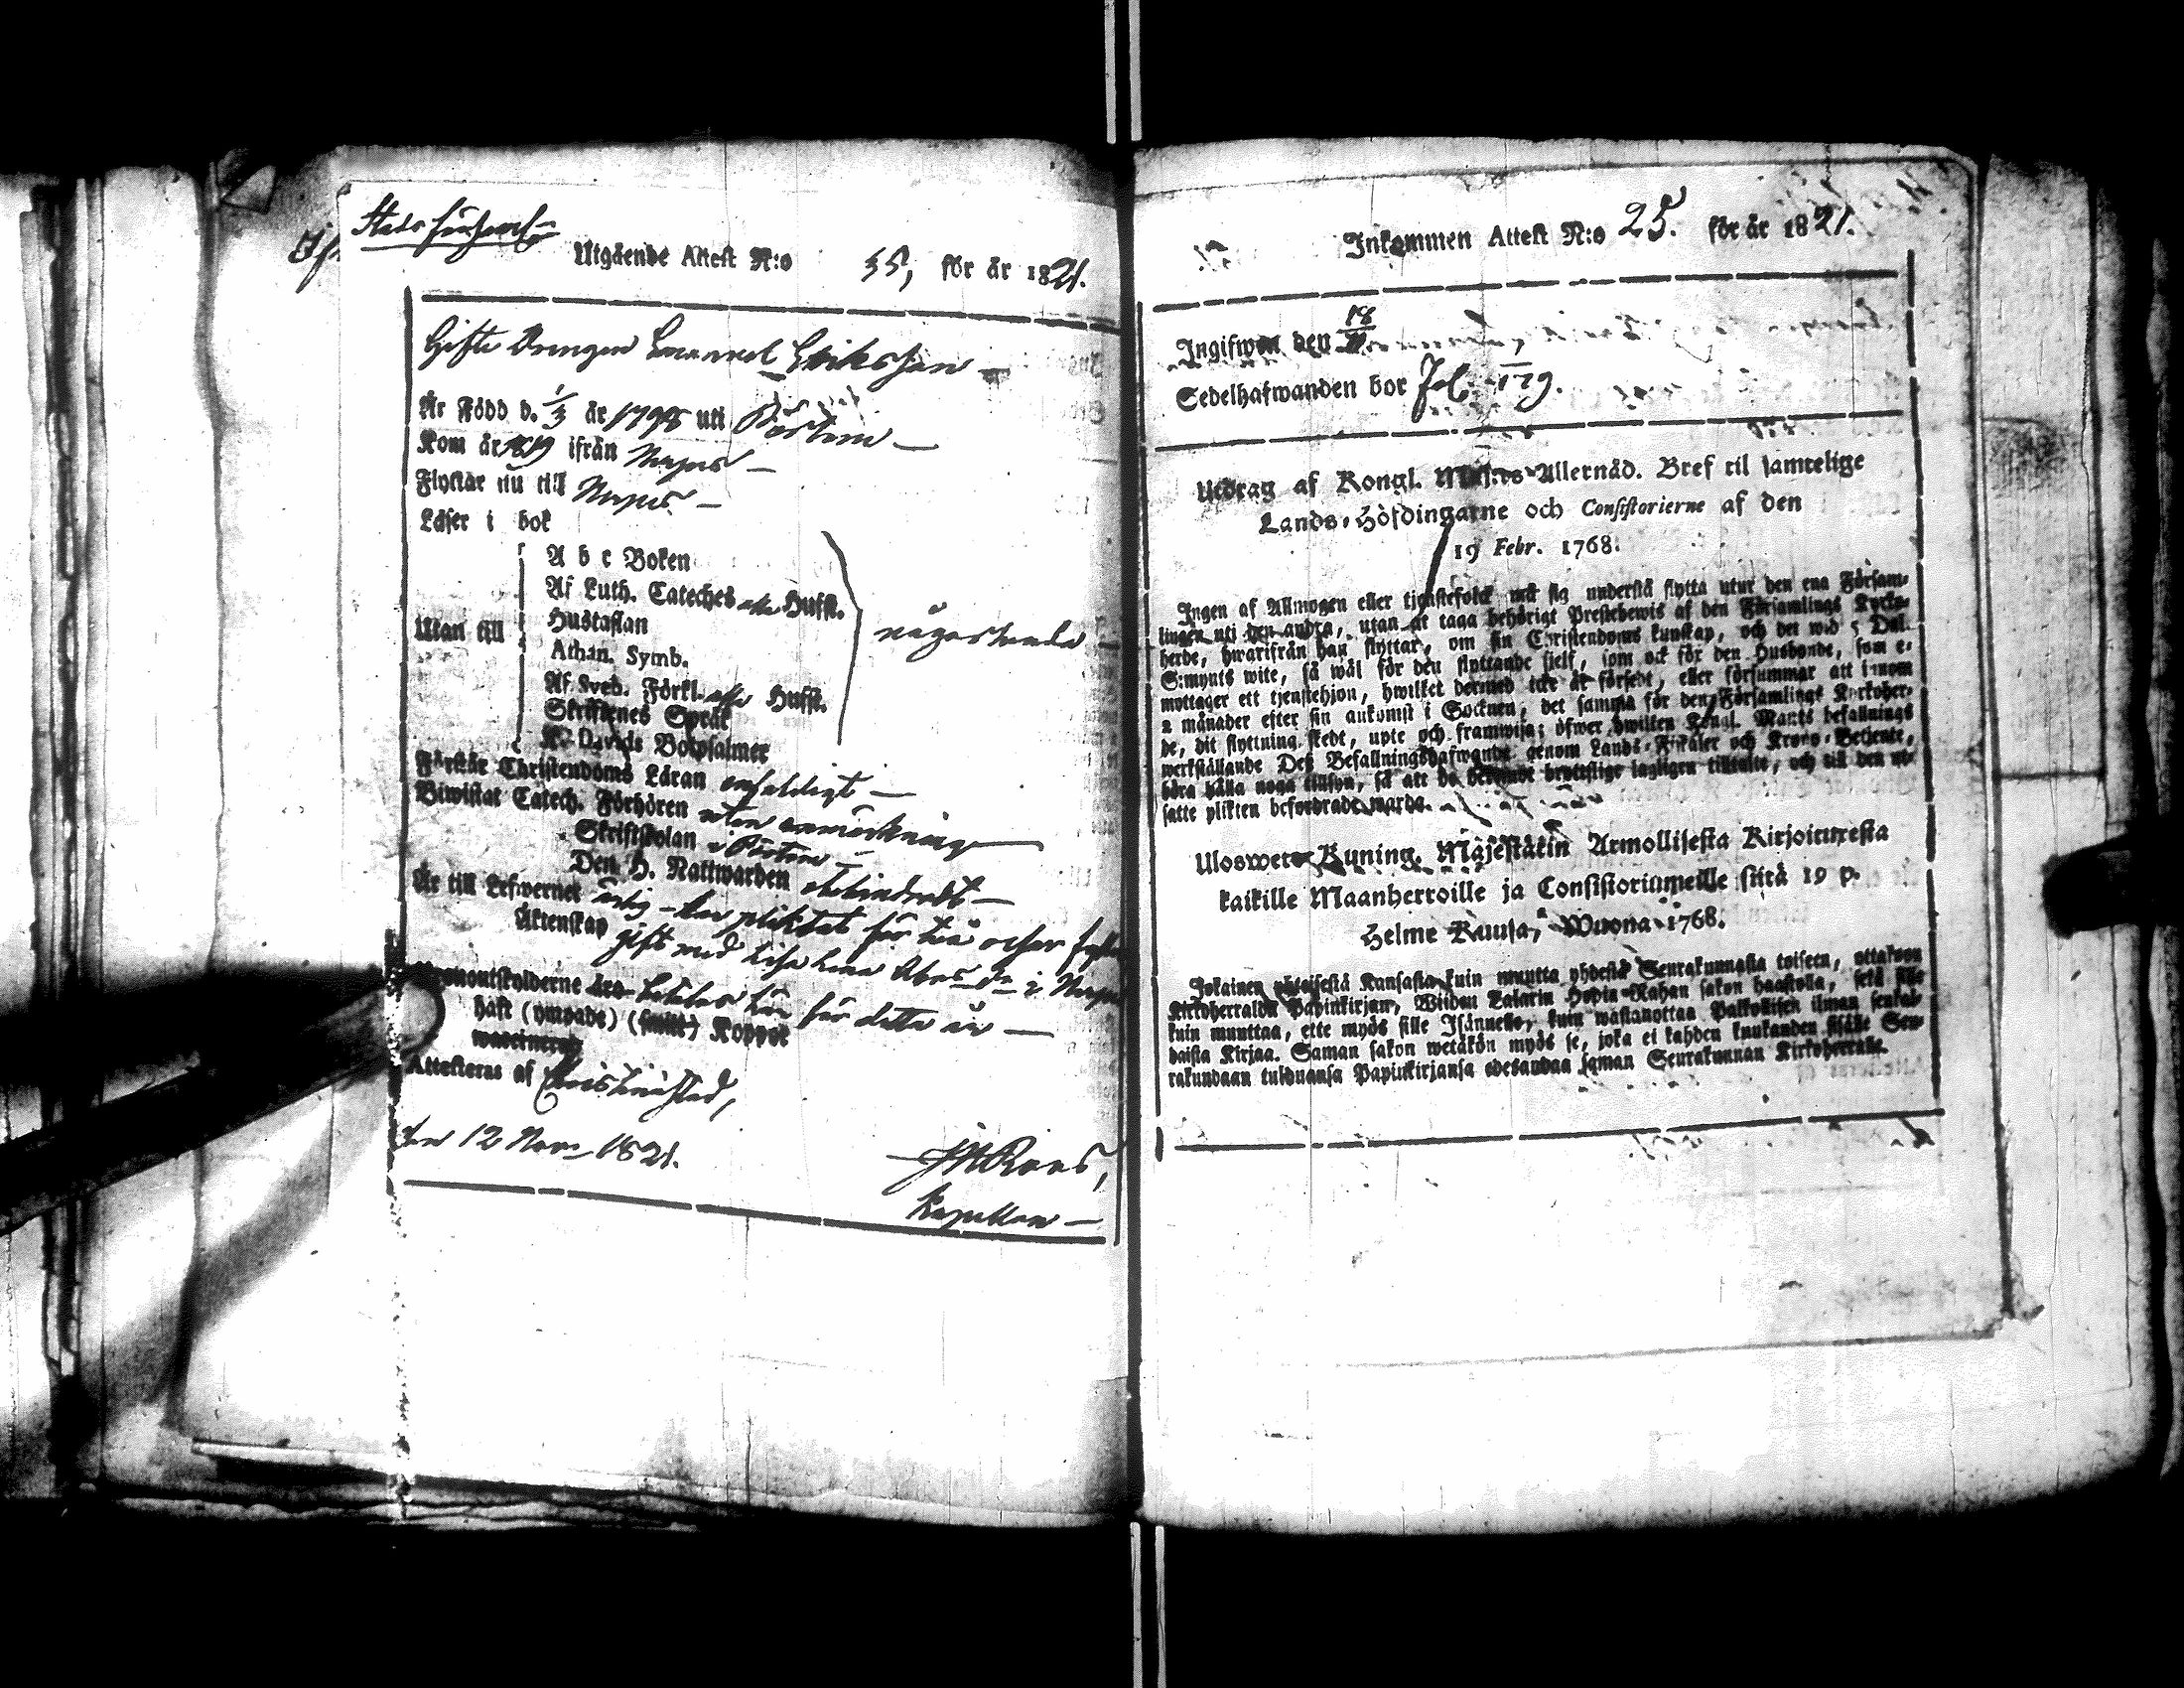 Utgående Attest N:o 35, för år 1821.
Gifte Drengen Emanuel Eriksson
Är Född d. 1/3 år 1798 uti Pörtom
Kom år 1819 ifrån Nerpes
Flyttar nu till Nerpes
Läser i bok
A b c Boken
Af Luth. Cateches Husft.
Hustaflan
Utan till
någorlunda
Athan. Symb.
Af Sved. Förkl. Husft.
Skriftenes Språk
K. Davids Botpsalmer
Förstår Christendoms Läran enfaldigt
Biwistat Catech. Förhören utan anmärkning
Skriftskolan i Pörtom
Den H. Nattwarden obehindradt
Är till Lefwernet ärlig har pliktat för
Äktenskap gift med Lisa Lena i
betalas här för detta år
haft (ympade) Koppor
Attesteras af Christinestad,
den 12 Nov. 1821.
Kapellan
Inkommen Attest N:o 25. för år 1821.
Ingifwen den 18
Sedelhafwanden bor Fol. 179.
Utdrag af Kongl. Maj:ts Allernåd. Bref til samtelige
Lands-Höfdingarne och Consistorierne af den
19 Febr. 1768.
Ingen af Allmogen eller tjenstefolck må sig understå flytta utur den ena Försam-
lingen uti den andra, utan at taga behörigt Prestebewis af den Församlings Kyrko-
herde, hwarifrån han flyttar, om sin Christendoms kunskap, och det wid 5 Dal.
S:mynts wite, så wäl för den flyttande sielf, som ock för den Husbonde, som e-
mottager ett tjenstehjon, hwilket dermed icke är försedt, eller försummar att innom
2 månader efter sin ankomst i Socknen, det samma för den Församlings Kyrkoher-
de, dit flyttning skedt, upte och framwisa; öfwer hwilken Kongl. Maj:ts befallnings
werkställande Deß Befallningshafwande genom Lands-Fiskaler och Krono-Betjente,
böra hålla noga tillsyn, så att de brottslige lagligen tilltalte, och till den ut-
satte plikten befordrade warda.
Ulosweto Kuning. Majestätin Armollisesta Kirjoituxesta
kaikille Maanherroille ja Consistoriumeille siitä 19 p.
Helme Kuusa, Wuona 1768.
Jokainen yhteisestä Kansasta kuin muutta yhdestä Seurakunnasta toiseen, ottakoon
Kirkoherralda Papinkirjan, Wiiden Talarin Hopia-Rahan sakon haastolla, sekä sille
kuin muuttaa, ette myös sille Isännelle, kuin wastanottaa Palkollisen ilman senkal-
daista Kirjaa. Saman sakon wetäkön myös se, joka ei kahden kuukauden sisälle Seu-
rakundaan tulduansa Papinkirjansa edesandaa saman Seurakunnan Kirkoherralle.